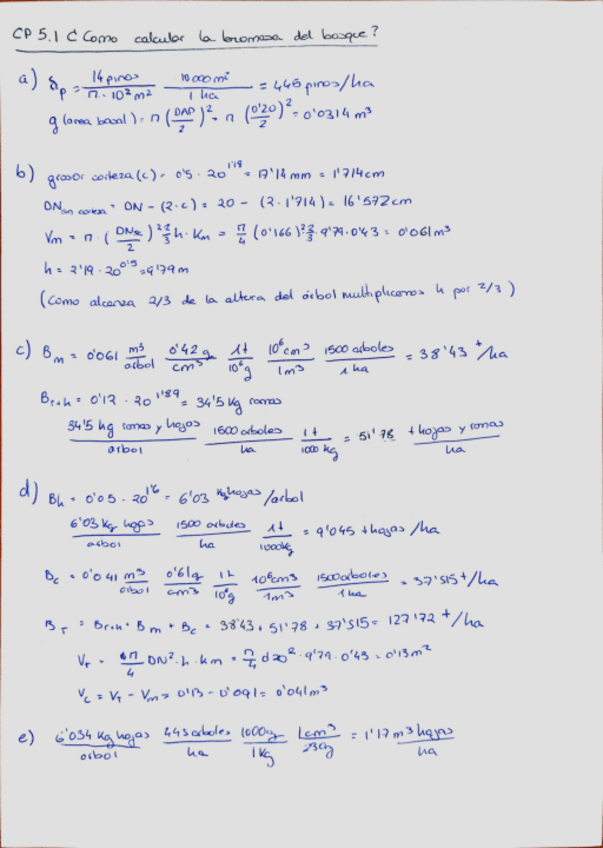 CP 5.1 ¿ Como calcular la biomasa del bosque?
a) δp = 14 pinos / π · 10² m² · 10000 m² / 1 ha = 445 pinos/ha
g (area basal) = π (DAP/2)² = π (0'20/2)² = 0'0314 m³
b) grosor corteza (c) = 0'5 · 20^1'18 = 17'14 mm = 1'714 cm
DN sin corteza = DN - (2 · c) = 20 - (2 · 1'714) = 16'572 cm
Vm = π · (DNsc/2)² 2/3 h · Km = π/4 (0'166)² 2/3 · 9'79 · 0'43 = 0'061 m³
h = 2'19 · 20^0'5 = 9'79 m
(Como alcanza 2/3 de la altura del árbol multiplicamos h por 2/3)
c) Bm = 0'061 m³/arbol 0'42 g/cm³ 1t/10⁶g 10⁶cm³/1m³ 1500 arboles/1 ha = 38'43 t/ha
Br+h = 0'12 · 20^1'89 = 34'5 kg ramas
34'5 kg ramas y hojas/arbol 1500 arboles/ha 1t/1000 kg = 51'78 t hojas y ramas/ha
d) Bh = 0'05 · 20^1'6 = 6'03 kg hojas/arbol
6'03 kg hojas/arbol 1500 arboles/ha 1t/1000kg = 9'045 t hojas/ha
Bc = 0'041 m³/arbol 0'61g/cm³ 1t/10⁶g 10⁶cm³/1m³ 1500 arboles/1 ha = 37'515 t/ha
BT = Br+h + Bm + Bc = 38'43 + 51'78 + 37'515 = 127'72 t/ha
VT = π/4 DN² · h · km = π/4 · 9'79 · 0'43 = 0'13 m²
Vc = VT - Vm = 0'13 - 0'091 = 0'041 m³
e) 6'034 kg hojas/arbol 445 arboles/ha 1000g/1kg 1cm³/230g = 1'17 m³ hojas/ha